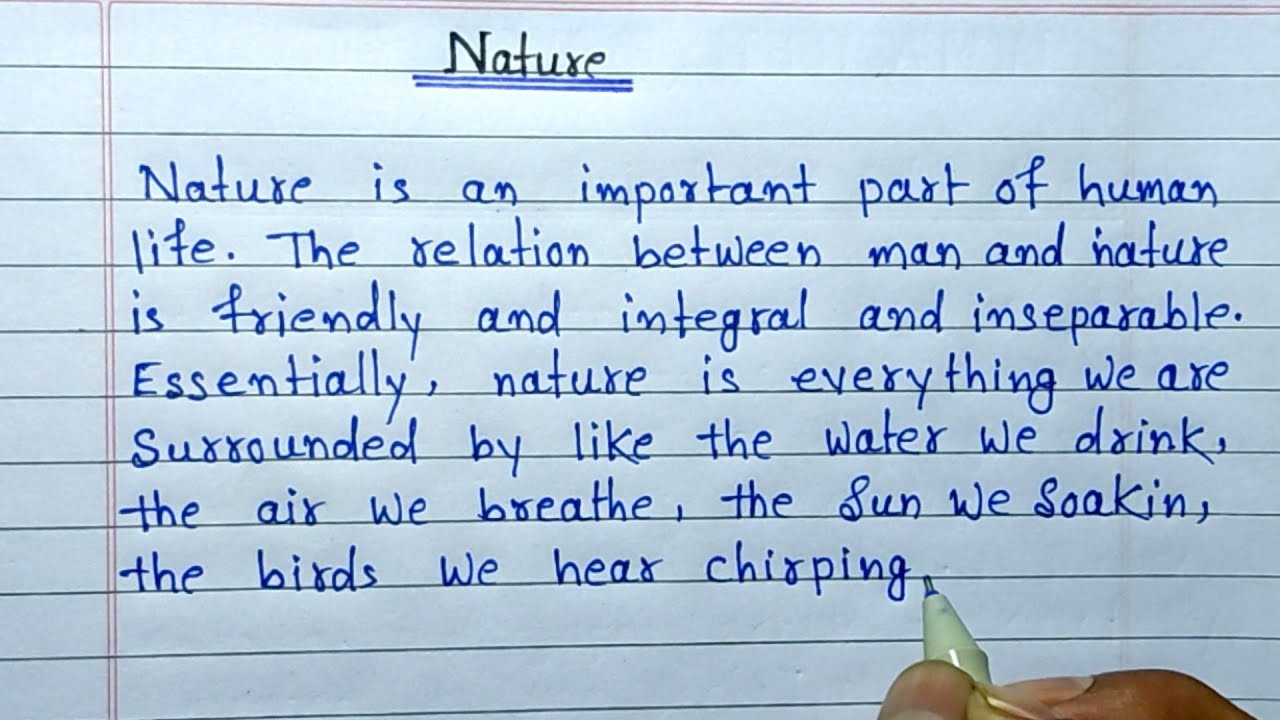 Nature
Nature is an important part of human
life. The relation between man and nature
is friendly and integral and inseparable.
Essentially, nature is everything we are
Surrounded by like the water we drink,
the air we breathe, the Sun we Soakin,
the birds we hear chirping,